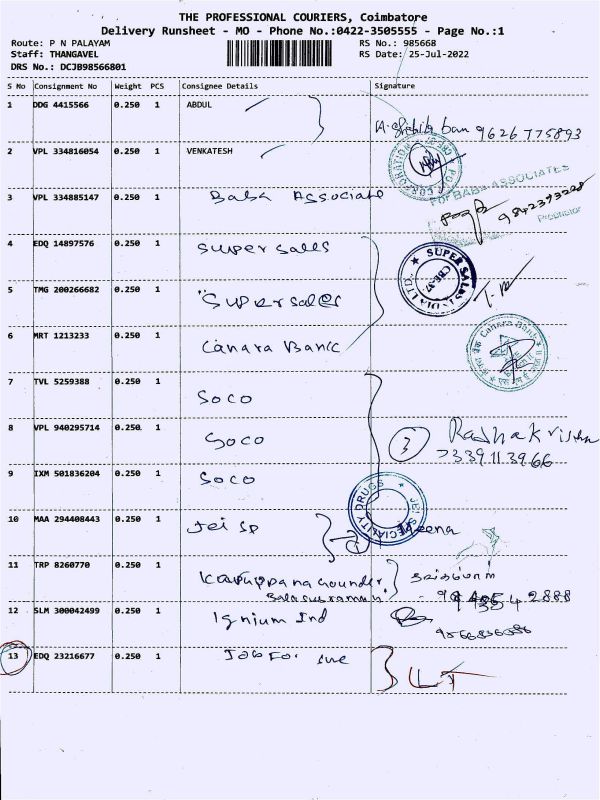 THE PROFESSIONAL COURIERS, Coimbatore
Delivery Runsheet - MO - Phone No.:0422-3505555 - Page No.:1
Route: P N PALAYAM RS No.: 985668
Staff: THANGAVEL RS Date: 25-Jul-2022
DRS No.: DCJB98566801
S No Consignment No Weight PCS Consignee Details Signature
1 DDG 4415566 0.250 1 ABDUL
ban 9626775893
2 VPL 334816054 0.250 1 VENKATESH
CORPORATION
3 VPL 334885147 0.250 1 Baba Associate
For BABA ASSOCIATES
Proprietor
4 EDQ 14897576 0.250 1 super sales
SUPER SALES INDIA LTD. CBE-37
5 TMG 200266682 0.250 1 "Super sales
6 MRT 1213233 0.250 1 Canara Bank
Canara Bank
7 TVL 5259388 0.250 1 Soco
8 VPL 940295714 0.250 1 Soco 3 Radhakrishn
7339113966
9 IXM 501836204 0.250 1 Soco
JEI SPECIALITY DRUGS
10 MAA 294408443 0.250 1 Jei SP Meena
11 TRP 8260770 0.250 1 Karuppana Gounder
Balasubramani
12 SLM 300042499 0.250 1 Ignium Ind
13 EDQ 23216677 0.250 1 Job For